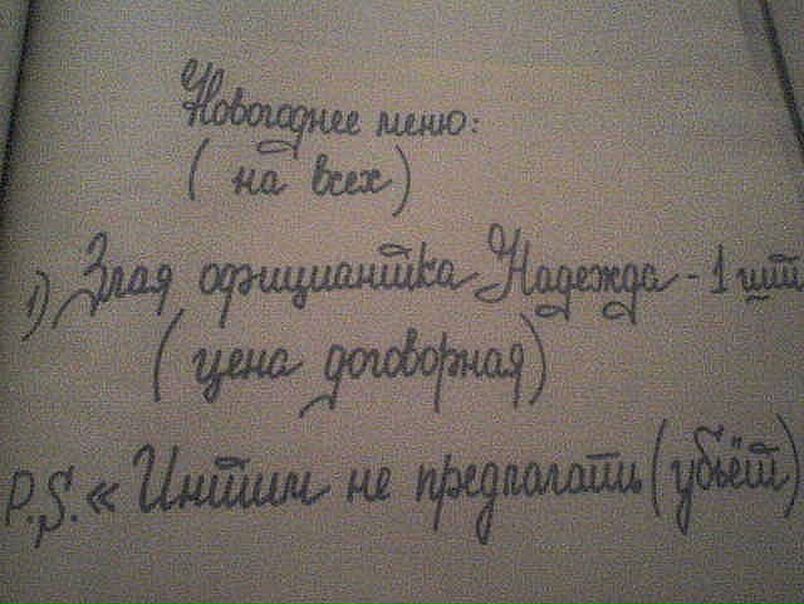 Новогоднее меню:
( на всех)
1) Злая официантка Надежда - 1 шт
( цена договорная)
P.S. « Интим не предлагать (убьёт)